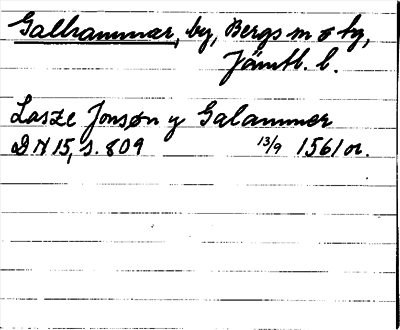 Galhammar, by, Bergs sn o tg,
Jämtl. l.
Lasze Jonsøn y Galammer
DN 15, s. 809 13/9 1561 or.